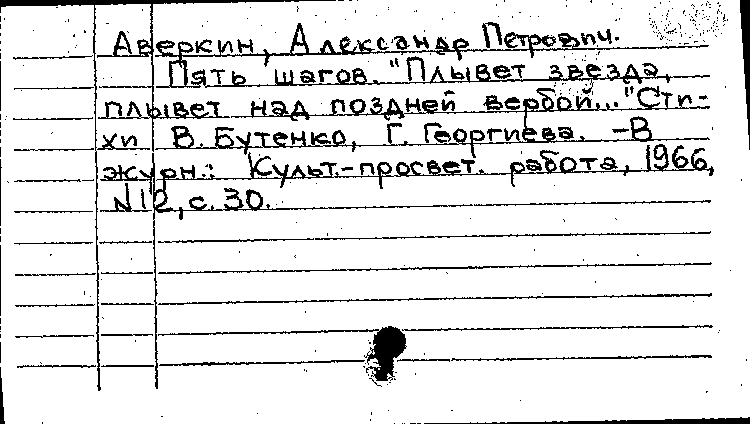 Аверкин, Александр Петрович.
Пять шагов. "Плывет звезда,
плывет над поздней вербой..." Сти-
хи В. Бутенко, Г. Георгиева. -В
журн.: Культ.-просвет. работа, 1966,
№12, с. 30.